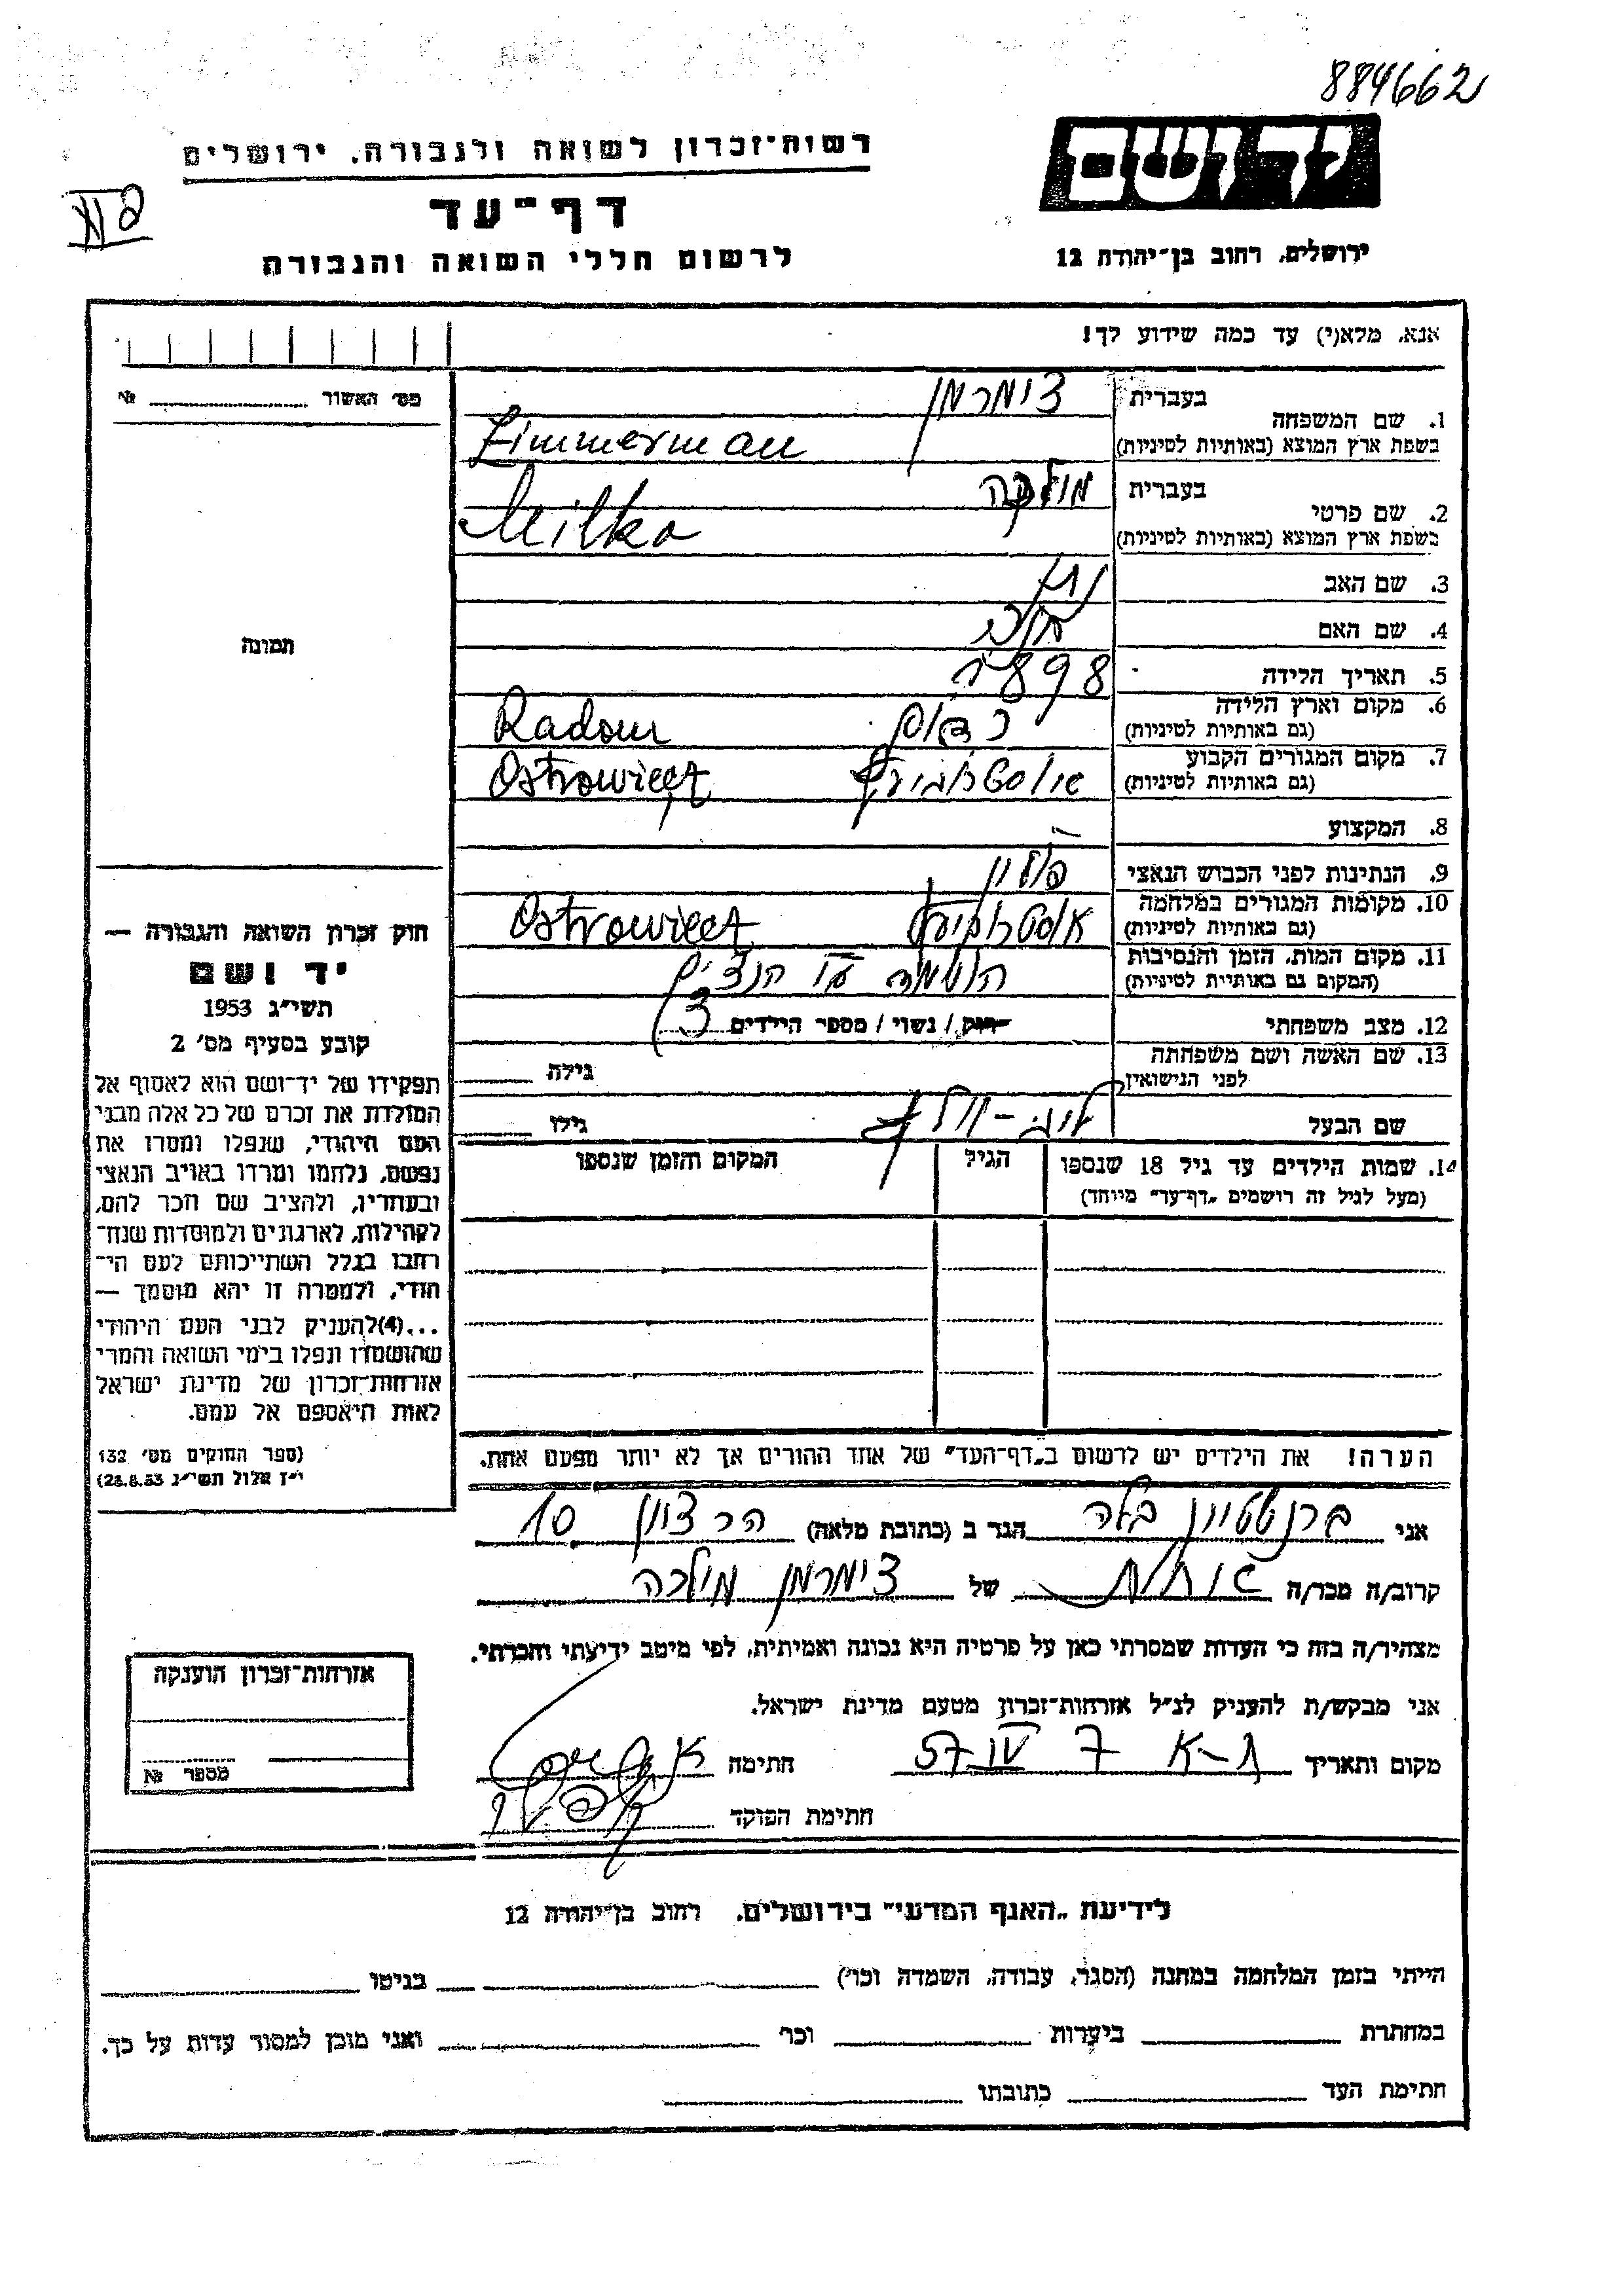 884662
יד ושם
רשות־זכרון לשואה ולגבורה, ירושלים
דף־עד
לרשום חללי השואה והגבורה
ירושלים, רחוב בן־יהודה 12
אנא, מלא(י) עד כמה שידוע לך!
מס׳ האשור №
1. שם המשפחה
בעברית צימרמן
בשפת ארץ המוצא (באותיות לטיניות) Zimmerman
2. שם פרטי
בעברית מילכה
בשפת ארץ המוצא (באותיות לטיניות) Milka
3. שם האב
4. שם האם
5. תאריך הלידה 1898
6. מקום וארץ הלידה
(גם באותיות לטיניות) רדום Radom
7. מקום המגורים הקבוע
(גם באותיות לטיניות) Ostrowiec
8. המקצוע —
9. הנתינות לפני הכבוש הנאצי פולין
10. מקומות המגורים במלחמה
(גם באותיות לטיניות) Ostrowiec
11. מקום המות, הזמן והנסיבות
(המקום גם באותיות לטיניות) הושמדה ע״י הנצים
12. מצב משפחתי רווק / נשוי / מספר הילדים
13. שם האשה ושם משפחתה
לפני הנישואין גילה
שם הבעל גילו
14. שמות הילדים עד גיל 18 שנספו
(מעל לגיל זה רושמים „דף־עד״ מיוחד)
הגיל
המקום והזמן שנספו
הערה! את הילדים יש לרשום ב„דף־העד״ של אחד ההורים אך לא יותר מפעם אחת.
תמונה
חוק זכרון השואה והגבורה —
יד ושם
תשי״ג 1953
קובע בסעיף מס׳ 2
תפקידו של יד־ושם הוא לאסוף אל
המולדת את זכרם של כל אלה מבני
העם היהודי, שנפלו ומסרו את
נפשם, נלחמו ומרדו באויב הנאצי
ובעוזריו, ולהציב שם וזכר להם,
לקהילות, לארגונים ולמוסדות שנח־
רבו בגלל השתייכותם לעם הי־
הודי, ולמטרה זו יהא מוסמך —
...(4)להעניק לבני העם היהודי
שהושמדו ונפלו בימי השואה והמרי
אזרחות־זכרון של מדינת ישראל
לאות היאספם אל עמם.
(ספר החוקים מס׳ 132
י״ז אלול תשי״ג 28.8.53)
אני ברנשטיין בלה הגר ב (כתובת מלאה) הר ציון 10
קרוב/ה מכר/ה של צימרמן מילכה
מצהיר/ה בזה כי העדות שמסרתי כאן על פרטיה היא נכונה ואמיתית, לפי מיטב ידיעתי והכרתי.
אני מבקש/ת להעניק לנ״ל אזרחות־זכרון מטעם מדינת ישראל.
מקום ותאריך ת-א 7 IV 57 חתימה
חתימת הפוקד
אזרחות־זכרון הוענקה
מספר №
לידיעת „האגף המדעי״ בירושלים, רחוב בן־יהודה 12
הייתי בזמן המלחמה במחנה (הסגר, עבודה, השמדה וכו׳) בגיטו
במחתרת ביערות וכו׳ ואני מוכן למסור עדות על כך.
חתימת העד כתובתו